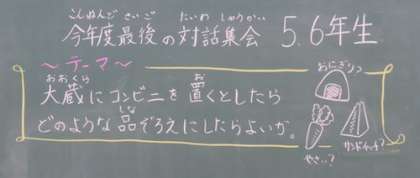 こんねんど さいご たいわ しゅうかい
今年度最後の対話集会 5.6年生
～テーマ～
おおくら お
大蔵にコンビニを置くとしたら
しな
どのような品ぞろえにしたらよいか。
おにぎりっ
やさい?
サンドイッチ?